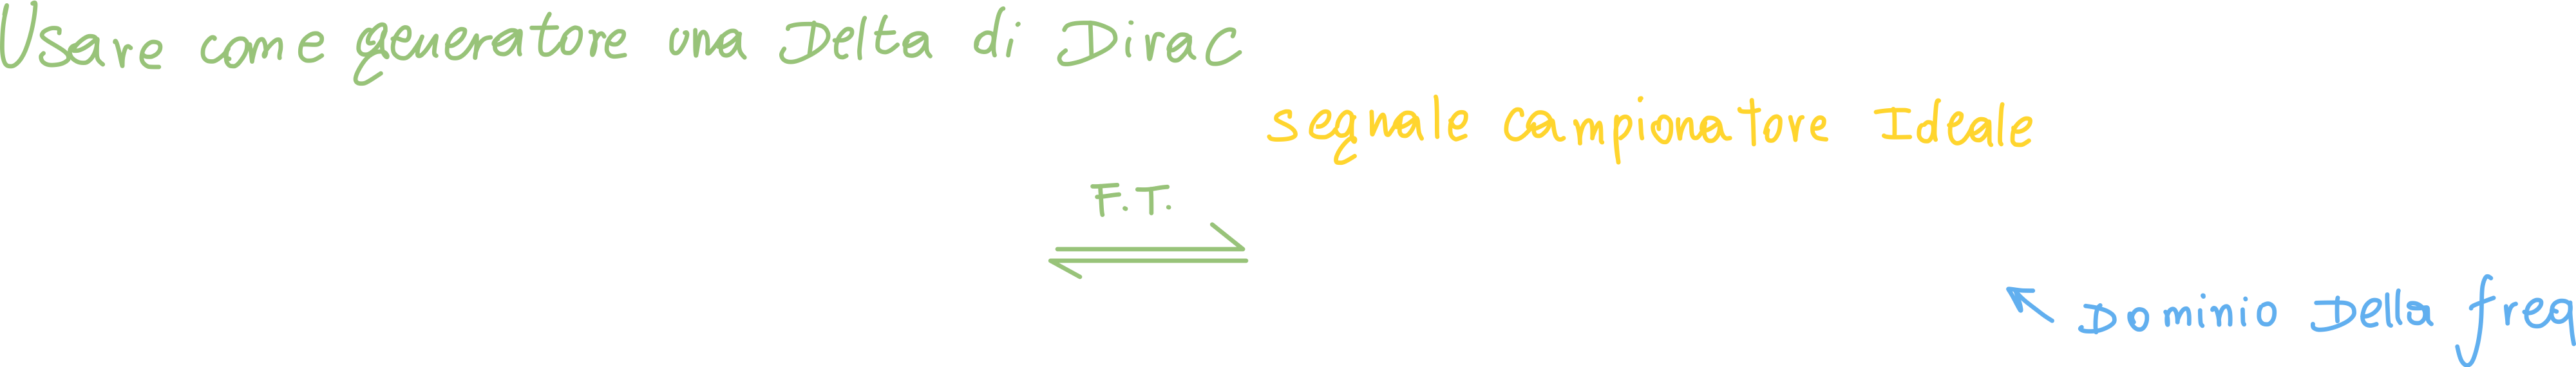 Usare come generatore una Delta di Dirac
segnale campionatore Ideale
F.T.
Dominio Della freq